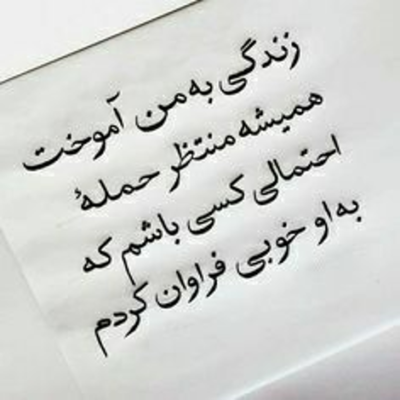 زندگی به من آموخت
همیشه منتظر حملهٔ
احتمالی کسی باشم که
به او خوبی فراوان کردم